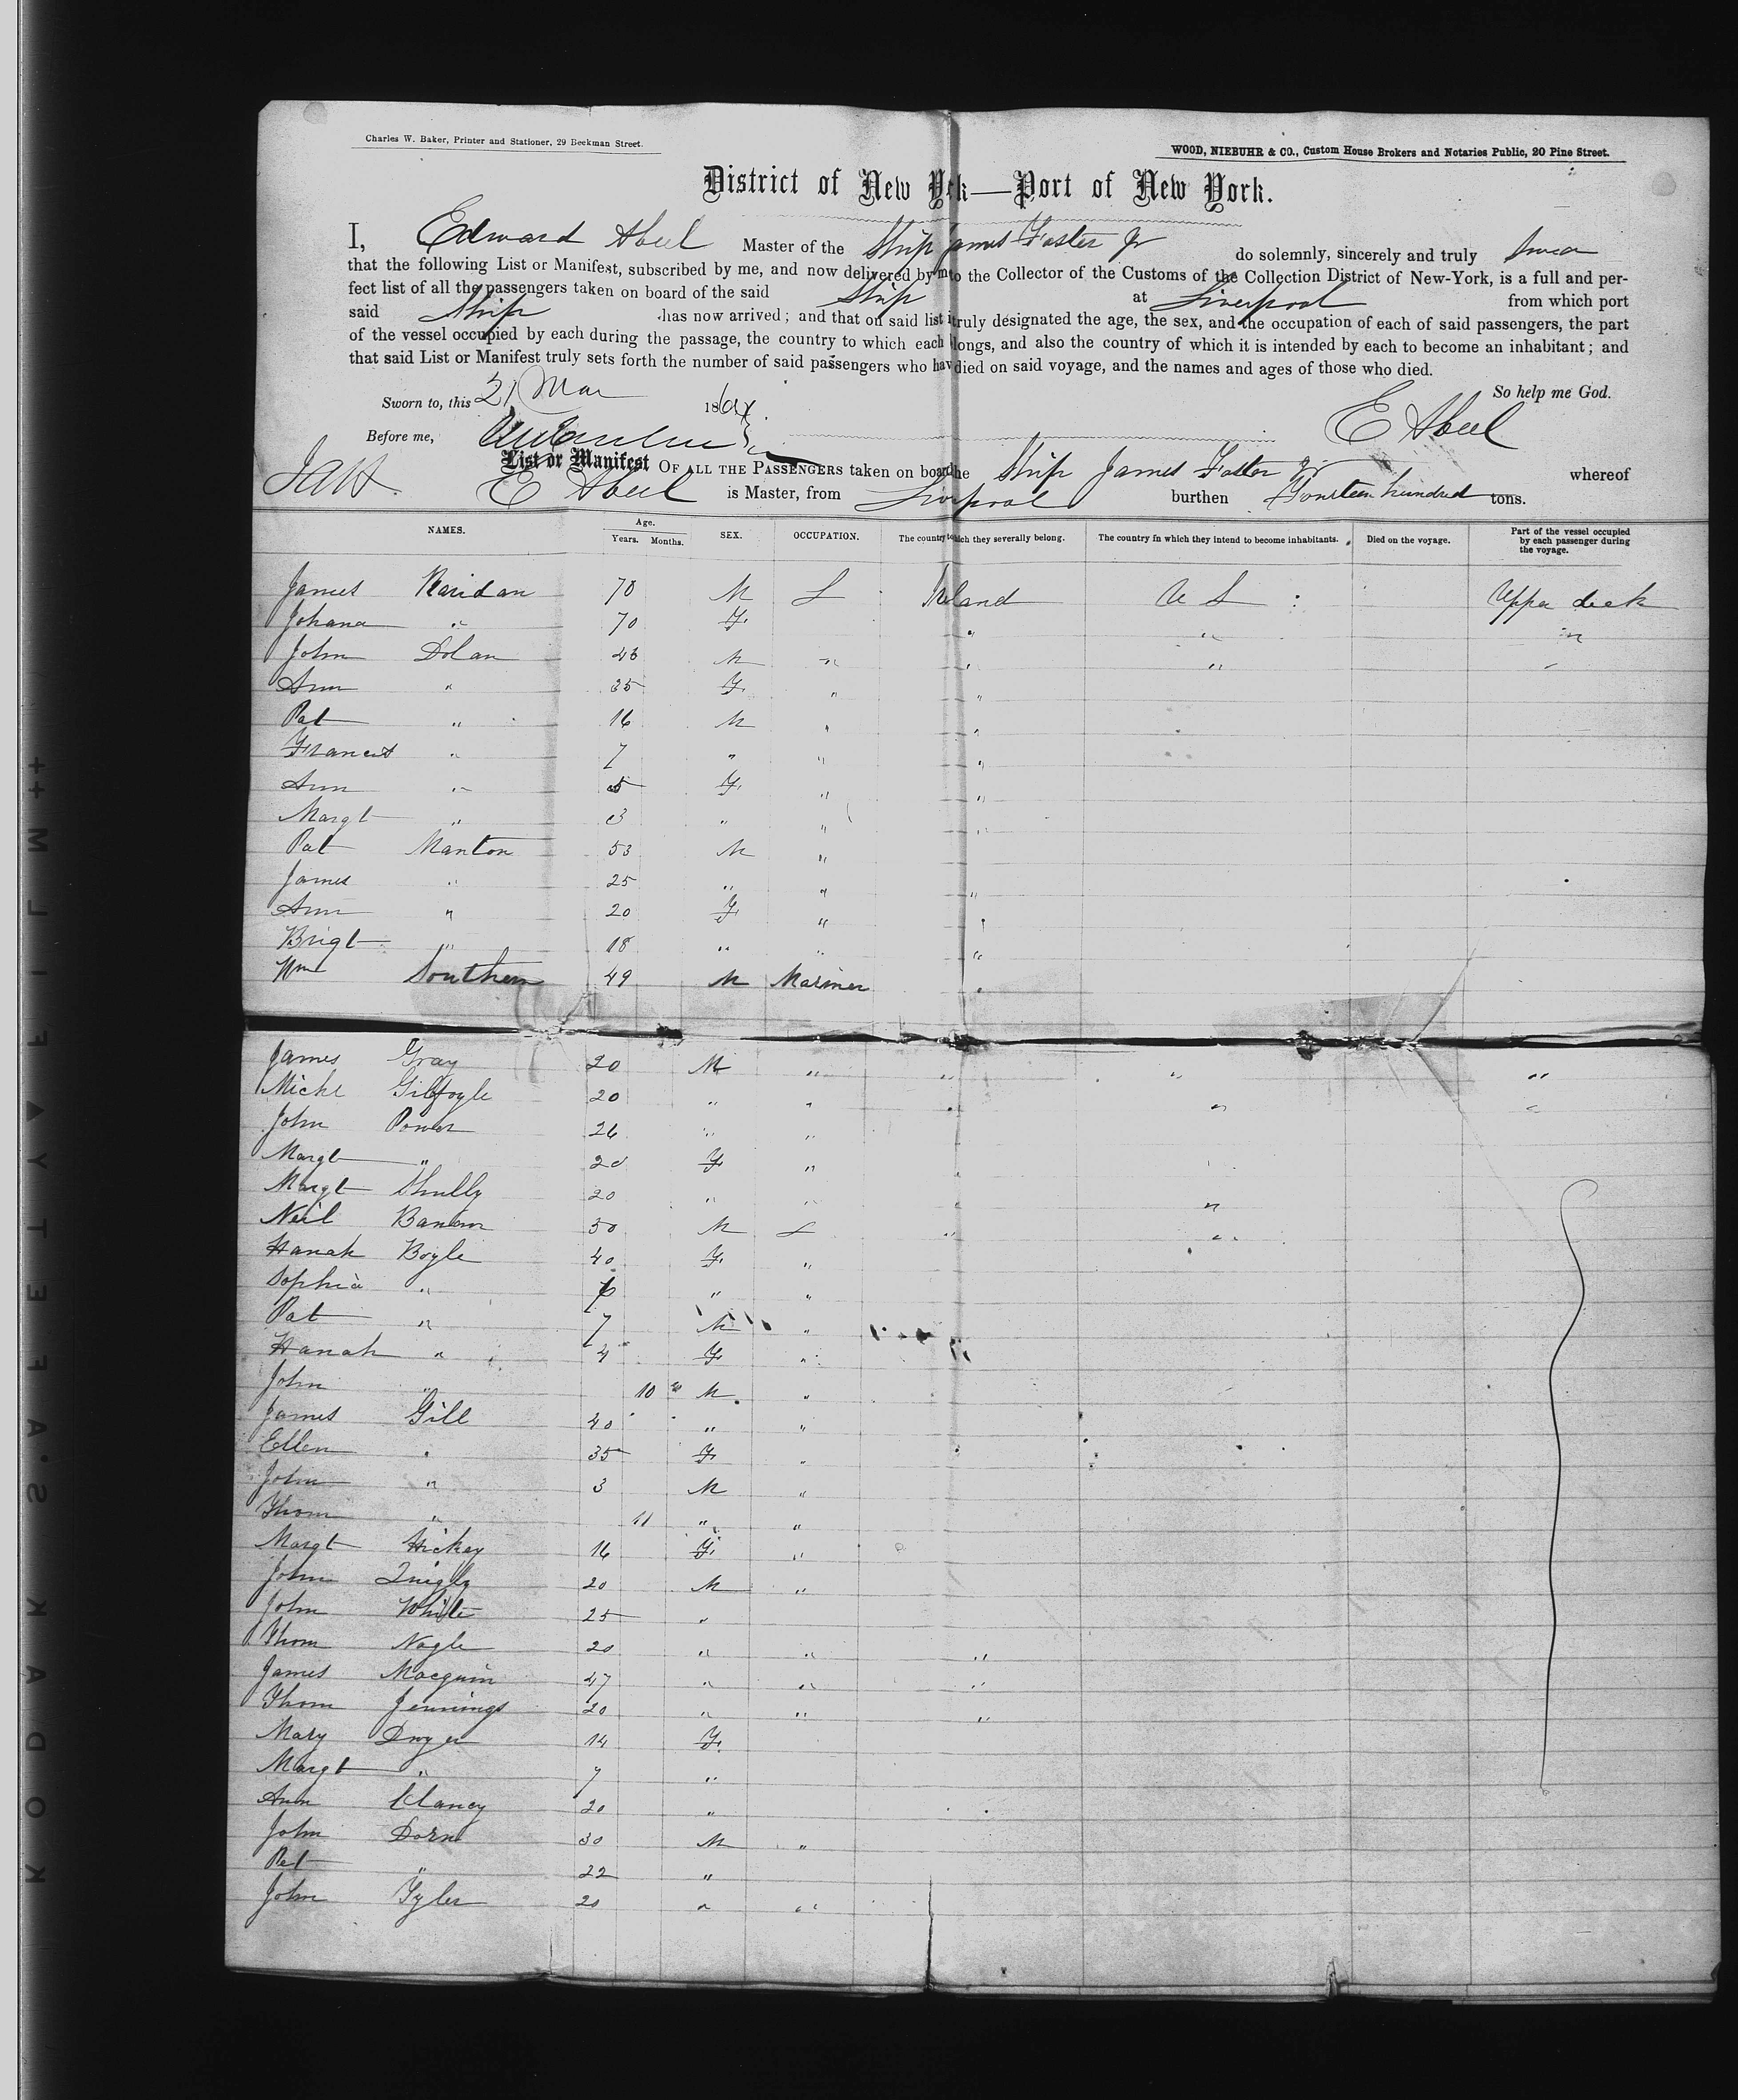 Charles W. Baker, Printer and Stationer, 29 Beekman Street.
WOOD, NIEBUHR & CO., Custom House Brokers and Notaries Public, 20 Pine Street.
District of New York—Port of New York.
I, Edward Abeel Master of the Ship James Foster Jr do solemnly, sincerely and truly Swear
that the following List or Manifest, subscribed by me, and now delivered by me to the Collector of the Customs of the Collection District of New-York, is a full and per-
fect list of all the passengers taken on board of the said Ship at Liverpool from which port
said Ship has now arrived; and that on said list is truly designated the age, the sex, and the occupation of each of said passengers, the part
of the vessel occupied by each during the passage, the country to which each belongs, and also the country of which it is intended by each to become an inhabitant; and
that said List or Manifest truly sets forth the number of said passengers who have died on said voyage, and the names and ages of those who died.
So help me God.
Sworn to, this 21 Mar 186
E Abeel
Before me,
List or Manifest OF ALL THE PASSENGERS taken on board the Ship James Foster Jr whereof
E Abeel is Master, from Liverpool burthen Fourteen hundred tons.
NAMES. Age. Years. Months. SEX. OCCUPATION. The country to which they severally belong. The country in which they intend to become inhabitants. Died on the voyage. Part of the vessel occupied by each passenger during the voyage.
James 70 M L Ireland U S Upper deck
Johana " 70 F " " "
John Dolan 43 M " " " "
Ann " 35 F " "
Pat " 16 M " "
Francis " 7 " " "
Ann " 5 F " "
Margt " 3 " " "
Pat Manton 53 M "
James " 25 " " "
Ann " 20 F " "
Brigt " 18 " " "
Wm Southern 49 M Mariner "
James Gray 20 M " " " "
Michl Gilfoyle 20 " " " " "
John Power 26 " "
Margt " 20 F " "
Margt Shully 20 " " " "
Neil 30 M L " "
Hanah Boyle 40 F "
Sophia " " "
Pat " 7 M "
Hanah " 4 F "
John " 10 M "
James Gill 40 " "
Ellen " 35 F "
John " 3 M "
Thom " 11 " "
Margt Hickey 16 F "
John Quigly 20 M "
John White 25 "
Thom Nagle 20 " " "
James Macquin 47 " " "
Thom Jennings 20 " " "
Mary Dwyer 14 F
Margt " 7 "
Ann Clancy 20 "
John Dorn 30 M "
Pat " 22 "
John Tyler 20 " "
KODAK SAFETY FILM